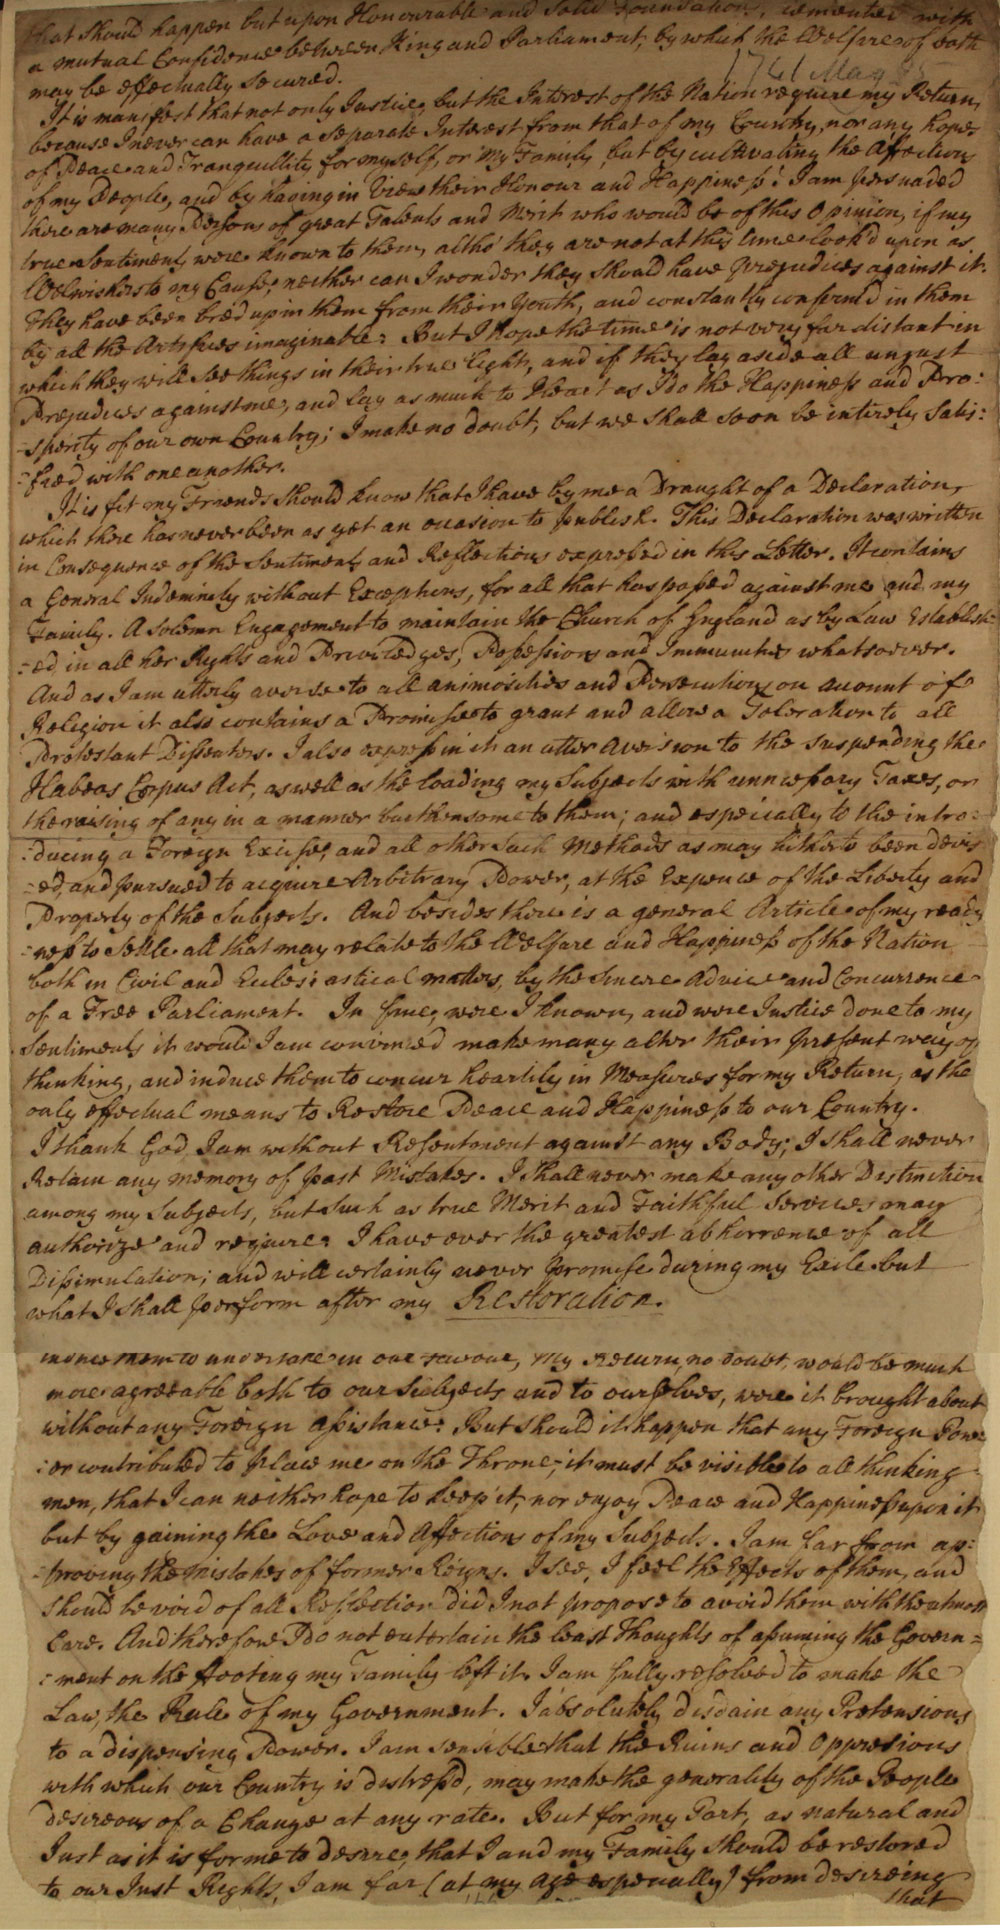 that should happen but upon Honourable and Solid Foundations, cemented with
a mutual Confidence between King and Parliament, by which the Welfare of both
may be effectually secured.
1741 May
It is manifest that not only Justice, but the Interest of the Nation require my Return,
because I never can have a separate Interest from that of my Country, nor any hopes
of Peace and Tranquillity for myself, or My Family but by cultivating the Affections
of my People, and by having in View their Honour and Happiness: I am perswaded
there are many Persons of great Talents and Merit who would be of this Opinion, if my
true Sentiments were known to them, altho' they are not at this time look'd upon as
Welwishers to my Cause; neither can I wonder they should have prejudices against it.
They have been bred up in them from their Youth, and constantly confirm'd in them
by all the Artifices imaginable: But I hope the time is not very far distant in
which they will see things in their true light, and if they lay aside all unjust
Prejudices against me, and lay as much to Heart as I do the Happiness and Pro:
-sperity of our own Country; I make no doubt, but we shall soon be intirely Satis:
-fied with one another.
It is fit my Friends should know that I have by me a Draught of a Declaration,
which there has never been as yet an occasion to publish. This Declaration was written
in Consequence of the Sentiments and Reflections expressed in this Letter. It contains
a General Indemnity without Exceptions, for all that has passed against me and my
Family. A Solemn Engagement to maintain the Church of England as by Law Establish-
-ed in all her Rights and Priviledges, Possessions and Immunities whatsoever.
And as I am utterly averse to all animosities and Persecutions on account of
Religion it also contains a Promise to grant and allow a Toleration to all
Protestant Dissenters. I also express in it an utter aversion to the suspending the
Habeas Corpus Act, as well as the loading my Subjects with unnecessary Taxes, or
the raising of any in a manner burthensome to them; and especially to the intro-
:ducing a Foreign Excise, and all other such Methods as may hitherto been devis
-ed, and pursued to acquire Arbitrary Power, at the Expence of the Liberty and
Property of the Subjects. And besides there is a general Article of my readi
-ness to Settle all that may relate to the Welfare and Happiness of the Nation
both in Civil and Eclesiastical matters, by the sincere Advice and Concurrence
of a Free Parliament. In fine, were I known, and were Justice done to my
Sentiments it would I am convinced make many alter their present way of
thinking, and induce them to concur heartily in Measures for my Return, as the
only effectual means to Restore Peace and Happiness to our Country.
I thank God, I am without Resentment against any Body; I shall never
Retain any memory of past Mistakes. I shall never make any other Distinction
among my Subjects, but such as true Merit and Faithful Services may
authorize and require: I have ever the greatest abhorrence of all
Dissimulation; and will certainly never promise during my Exile but
what I shall perform after my Restoration.
induce them to undertake in our favour, My Return, no doubt, would be much
more agreeable both to our Subjects and to ourselves, were it brought about
without any Foreign Assistance: But should it happen that any Foreign Pow
:er contributed to place me on the Throne, it must be visible to all thinking
men, that I can neither hope to keep it, nor enjoy Peace and Happiness upon it
but by gaining the Love and Affections of my Subjects. I am far from ap:
-proving the Mistakes of former Reigns. I see, I feel the Effects of them, and
should be void of all Reflection did I not propose to avoid them with the utmost
Care. And therefore I do not entertain the least Thoughts of assuming the Govern=
:ment on the footing my Family left it. I am fully resolved to make the
Law, the Rule of my Government. I absolutely disdain any Pretensions
to a dispensing Power. I am sensible that the Ruins and Oppressions
with which our Country is distress'd, may make the generality of the People
desireous of a Change at any rate. But for my Part, as natural and
Just as it is for me to desire, that I and my Family should be restored
to our Just Rights, I am far (at my age especially) from desireing
that